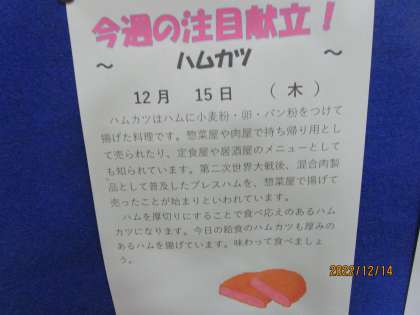 今週の注目献立！
～ ハムカツ ～
12月 15日 (木)
ハムカツはハムに小麦粉・卵・パン粉をつけて
揚げた料理です。惣菜屋や肉屋で持ち帰り用とし
て売られたり、定食屋や居酒屋のメニューとして
も知られています。第二次世界大戦後、混合肉製
品として普及したプレスハムを、惣菜屋で揚げて
売ったことが始まりといわれています。
ハムを厚切りにすることで食べ応えのあるハム
カツになります。今日の給食のハムカツも厚みの
あるハムを揚げています。味わって食べましょ
う。
2022/12/14